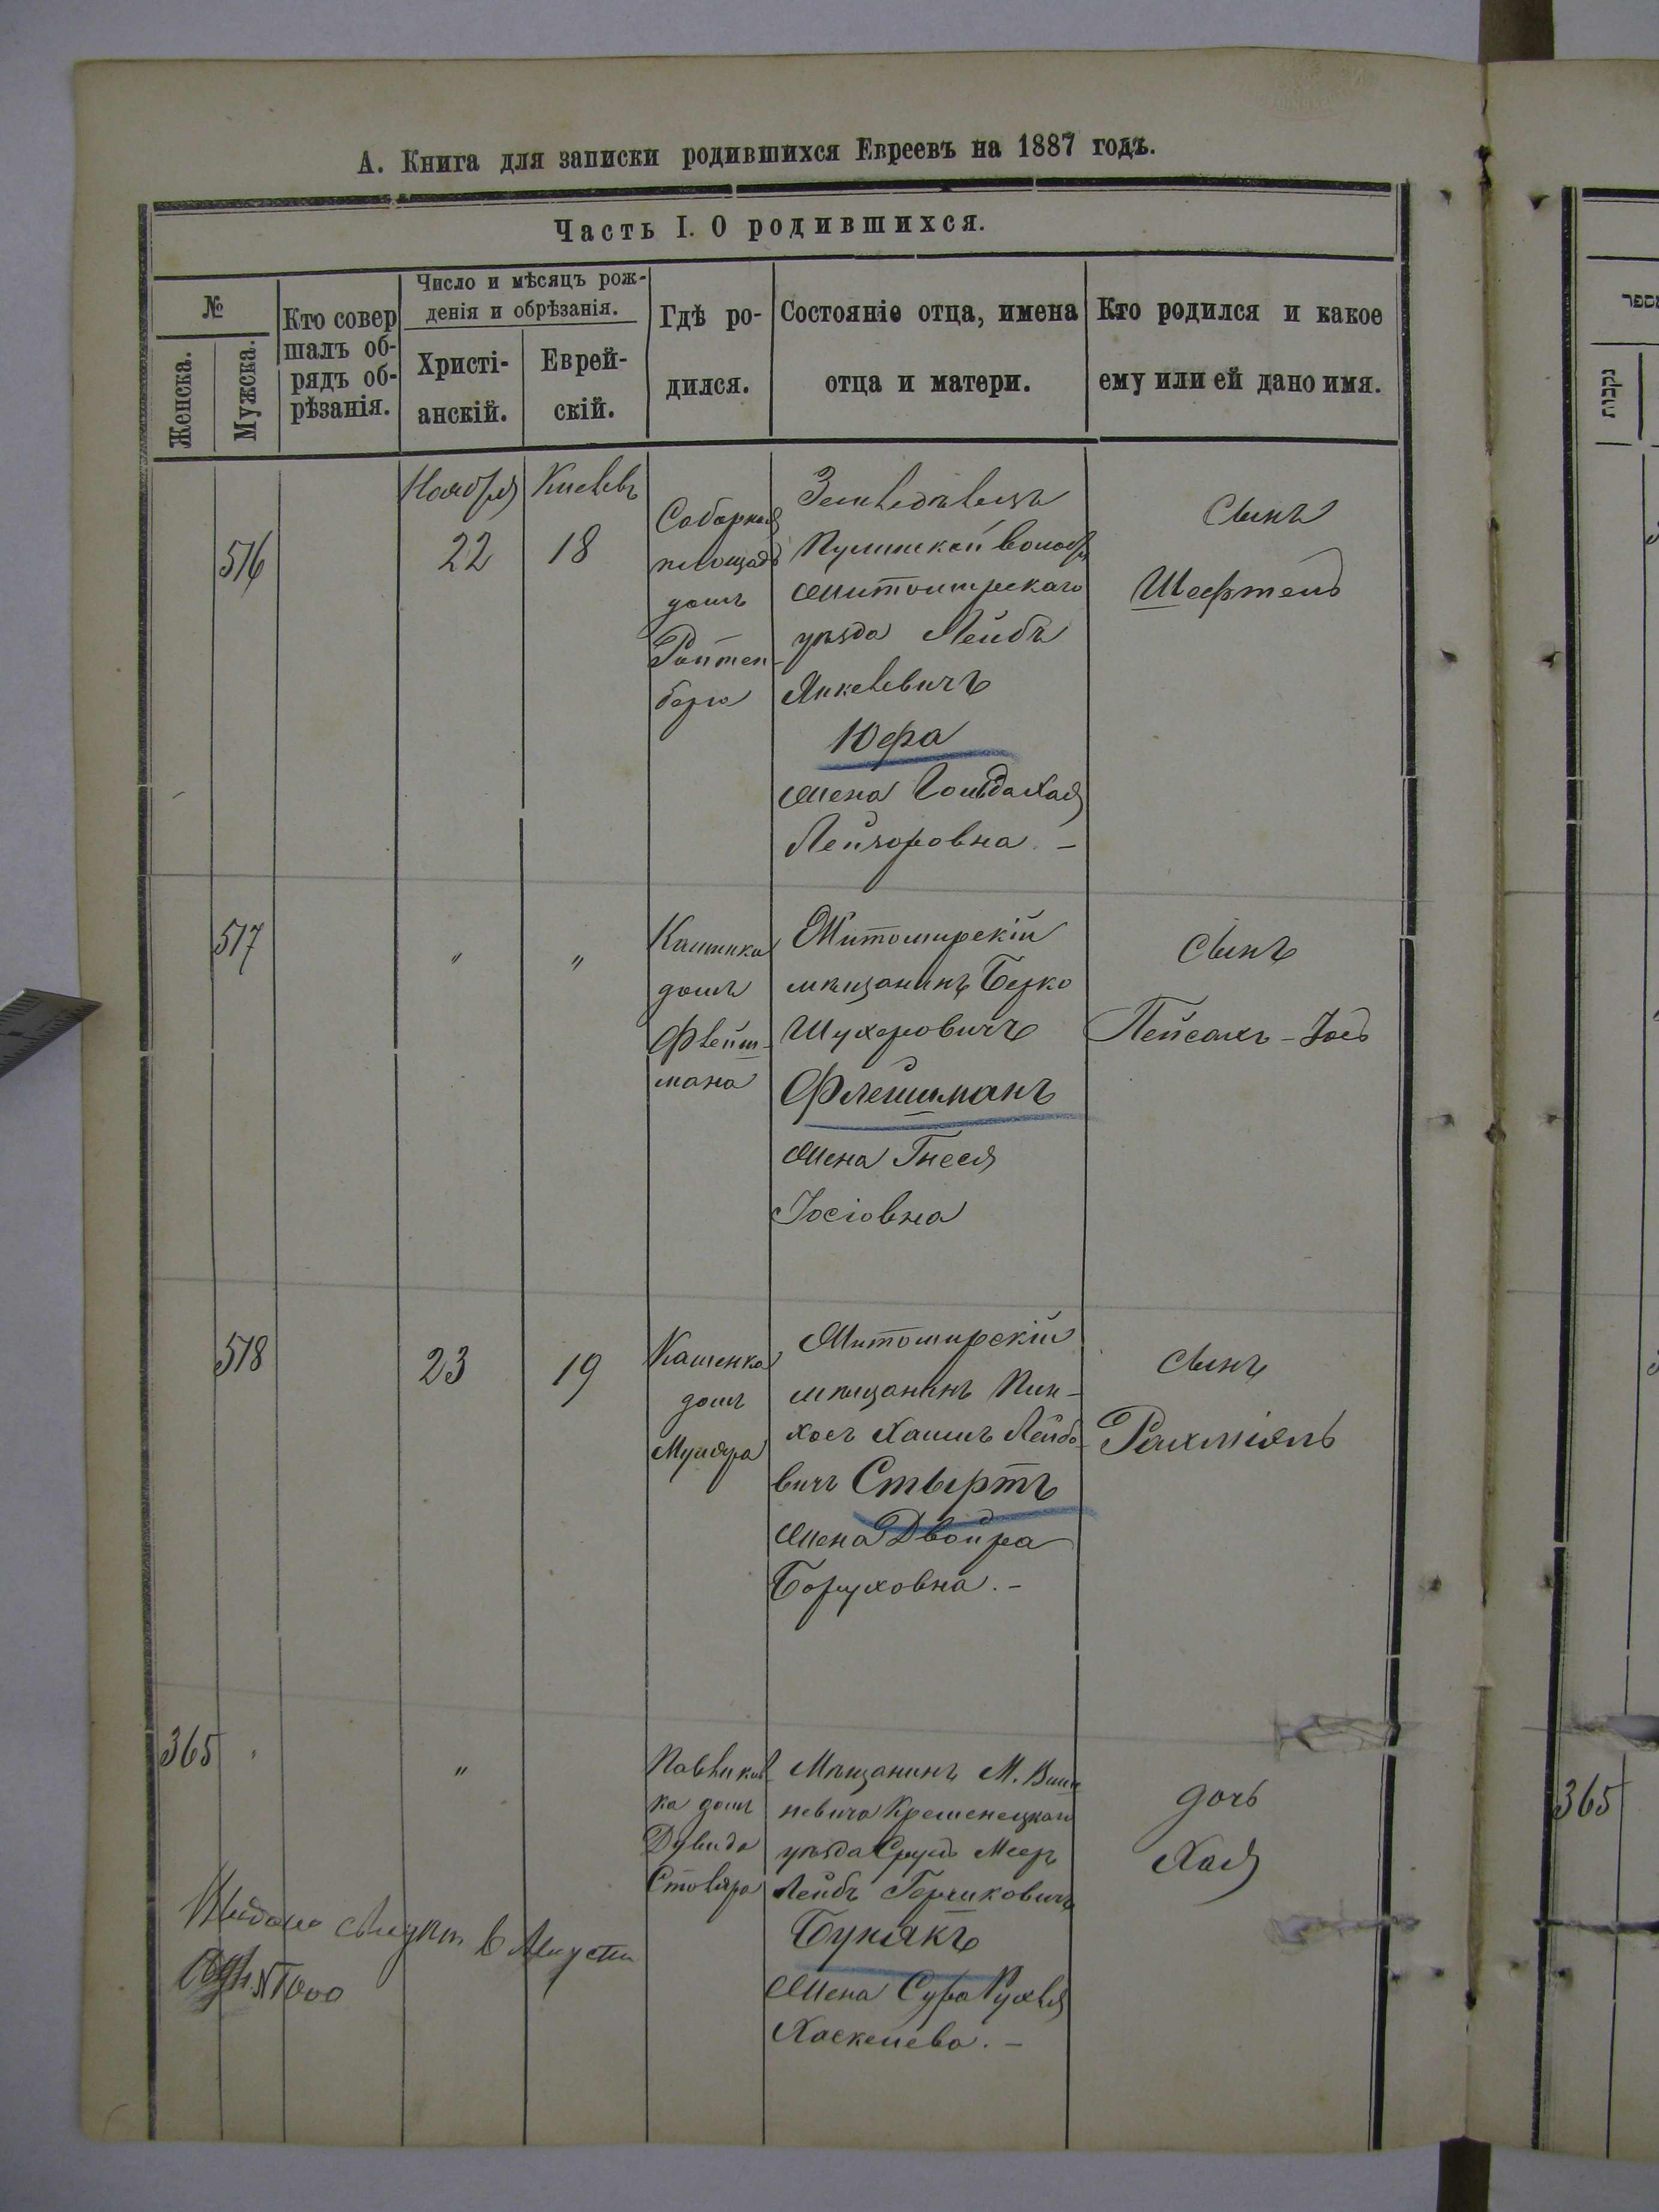 А. Книга для записки родившихся Евреевъ на 1887 годъ.
Часть I. О родившихся.
№
Женска.
Мужска.
Кто совер
шалъ об-
рядъ об-
рѣзанія.
Число и мѣсяцъ рож-
денія и обрѣзанія.
Христі-
анскій.
Еврей-
скій.
Гдѣ ро-
дился.
Состояніе отца, имена
отца и матери.
Кто родился и какое
ему или ей дано имя.
516
Ноября
22
Кислевъ
18
Соборная
площадь
домъ
Ройтен-
берга
Земледѣлецъ
Пулинской волости
Житомирскаго
уѣзда Лейбъ
Янкелевичъ
Юфа
жена Гольда Хая
Лейзоровна. –
Сынъ
Шефтель
517
"
"
Кашпика
домъ
Флейш-
мана
Житомирскій
мѣщанинъ Берко
Шухеровичъ
Флешманъ
жена Гнеся
Іосіовна
Сынъ
Пейсахъ - Іось
518
23
19
Кашенка
домъ
Житомирскій
мѣщанинъ Пин-
хосъ Хаимъ Лейбо-
вичъ Стыртъ
жена Двойра
Боруховна. –
сынъ
Рахміель
365
"
Павликов-
ка домъ
Дувида
Столяра
Мѣщанинъ М. Виш-
невича Кременецкаго
уѣзда Сруль Меер
Лейбъ Гершковичъ
Бунякъ
жена Сура Рухля
Хаскелева. –
дочь
Хая
Выдано
в Августа
№ 1000
מספר
נקבות
365